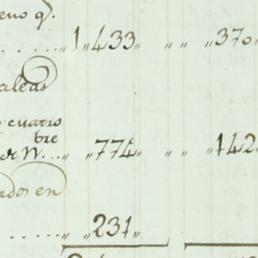 eno q.ͤ
..... 1,,433 ,, ,, ,,370
aleas
cuatro
bre
er N... ,, ,,774,, ,, ,, ,,142
ados en
..... ,,231,,